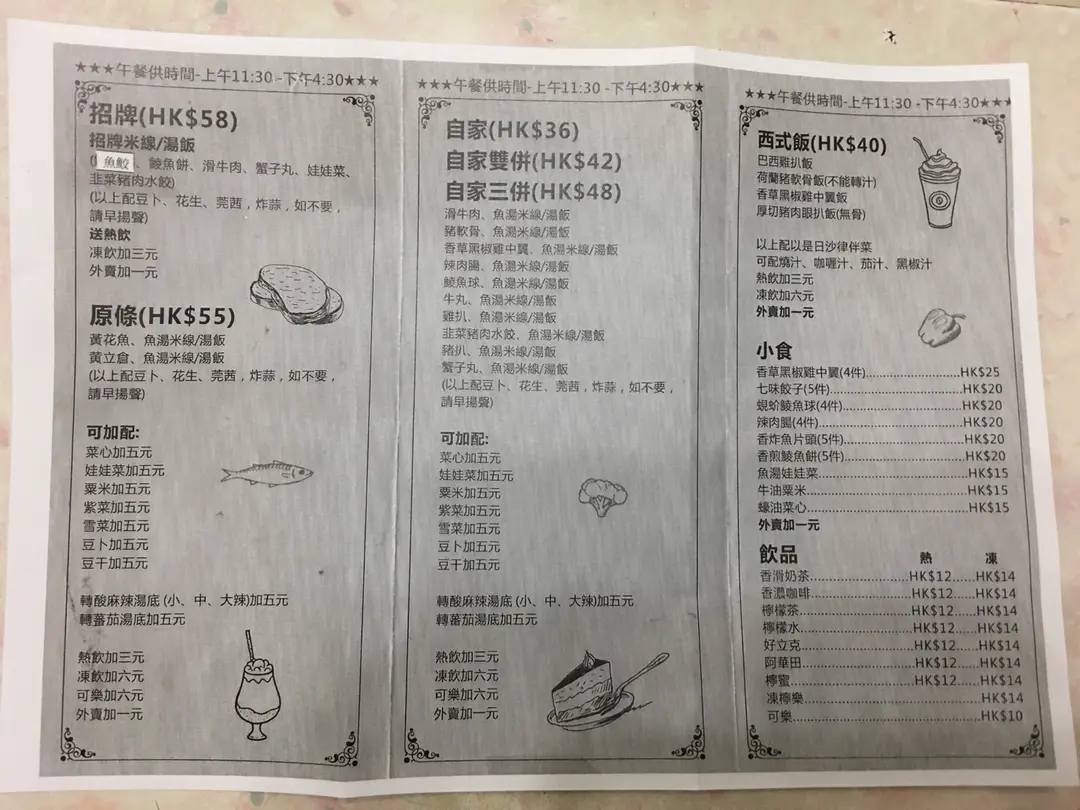 ★★★午餐供時間-上午11:30 -下午4:30★★★
招牌(HK$58)
招牌米線/湯飯
(魚餃、鯪魚餅、滑牛肉、蟹子丸、娃娃菜、
韭菜豬肉水餃)
(以上配豆卜、花生、莞茜，炸蒜，如不要，
請早揚聲)
送熱飲
凍飲加三元
外賣加一元
原條(HK$55)
黃花魚、魚湯米線/湯飯
黃立倉、魚湯米線/湯飯
(以上配豆卜、花生、莞茜，炸蒜，如不要，
請早揚聲)
可加配:
菜心加五元
娃娃菜加五元
粟米加五元
紫菜加五元
雪菜加五元
豆卜加五元
豆干加五元
轉酸麻辣湯底 (小、中、大辣)加五元
轉蕃茄湯底加五元
熱飲加三元
凍飲加六元
可樂加六元
外賣加一元
★★★午餐供時間-上午11:30 -下午4:30★★★
自家(HK$36)
自家雙併(HK$42)
自家三併(HK$48)
滑牛肉、魚湯米線/湯飯
豬軟骨、魚湯米線/湯飯
香草黑椒雞中翼、魚湯米線/湯飯
辣肉腸、魚湯米線/湯飯
鯪魚球、魚湯米線/湯飯
牛丸、魚湯米線/湯飯
雞扒、魚湯米線/湯飯
韭菜豬肉水餃、魚湯米線/湯飯
豬扒、魚湯米線/湯飯
蟹子丸、魚湯米線/湯飯
(以上配豆卜、花生、莞茜，炸蒜，如不要，
請早揚聲)
可加配:
菜心加五元
娃娃菜加五元
粟米加五元
紫菜加五元
雪菜加五元
豆卜加五元
豆干加五元
轉酸麻辣湯底 (小、中、大辣)加五元
轉蕃茄湯底加五元
熱飲加三元
凍飲加六元
可樂加六元
外賣加一元
★★★午餐供時間-上午11:30 -下午4:30★★★
西式飯(HK$40)
巴西雞扒飯
荷蘭豬軟骨飯(不能轉汁)
香草黑椒雞中翼飯
厚切豬肉眼扒飯(無骨)
以上配以是日沙律伴菜
可配燒汁、咖喱汁、茄汁、黑椒汁
熱飲加三元
凍飲加六元
外賣加一元
小食
香草黑椒雞中翼(4件)........................HK$25
七味餃子(5件)........................HK$20
蜆蚧鯪魚球(4件)........................HK$20
辣肉腸(4件)........................HK$20
香炸魚片頭(5件)........................HK$20
香煎鯪魚餅(5件)........................HK$20
魚湯娃娃菜........................HK$15
牛油粟米........................HK$15
蠔油菜心........................HK$15
外賣加一元
飲品 熱 凍
香滑奶茶....................HK$12......HK$14
香濃咖啡....................HK$12......HK$14
檸檬茶....................HK$12......HK$14
檸檬水....................HK$12......HK$14
好立克....................HK$12......HK$14
阿華田....................HK$12......HK$14
檸蜜....................HK$12......HK$14
凍檸樂....................HK$14
可樂....................HK$10